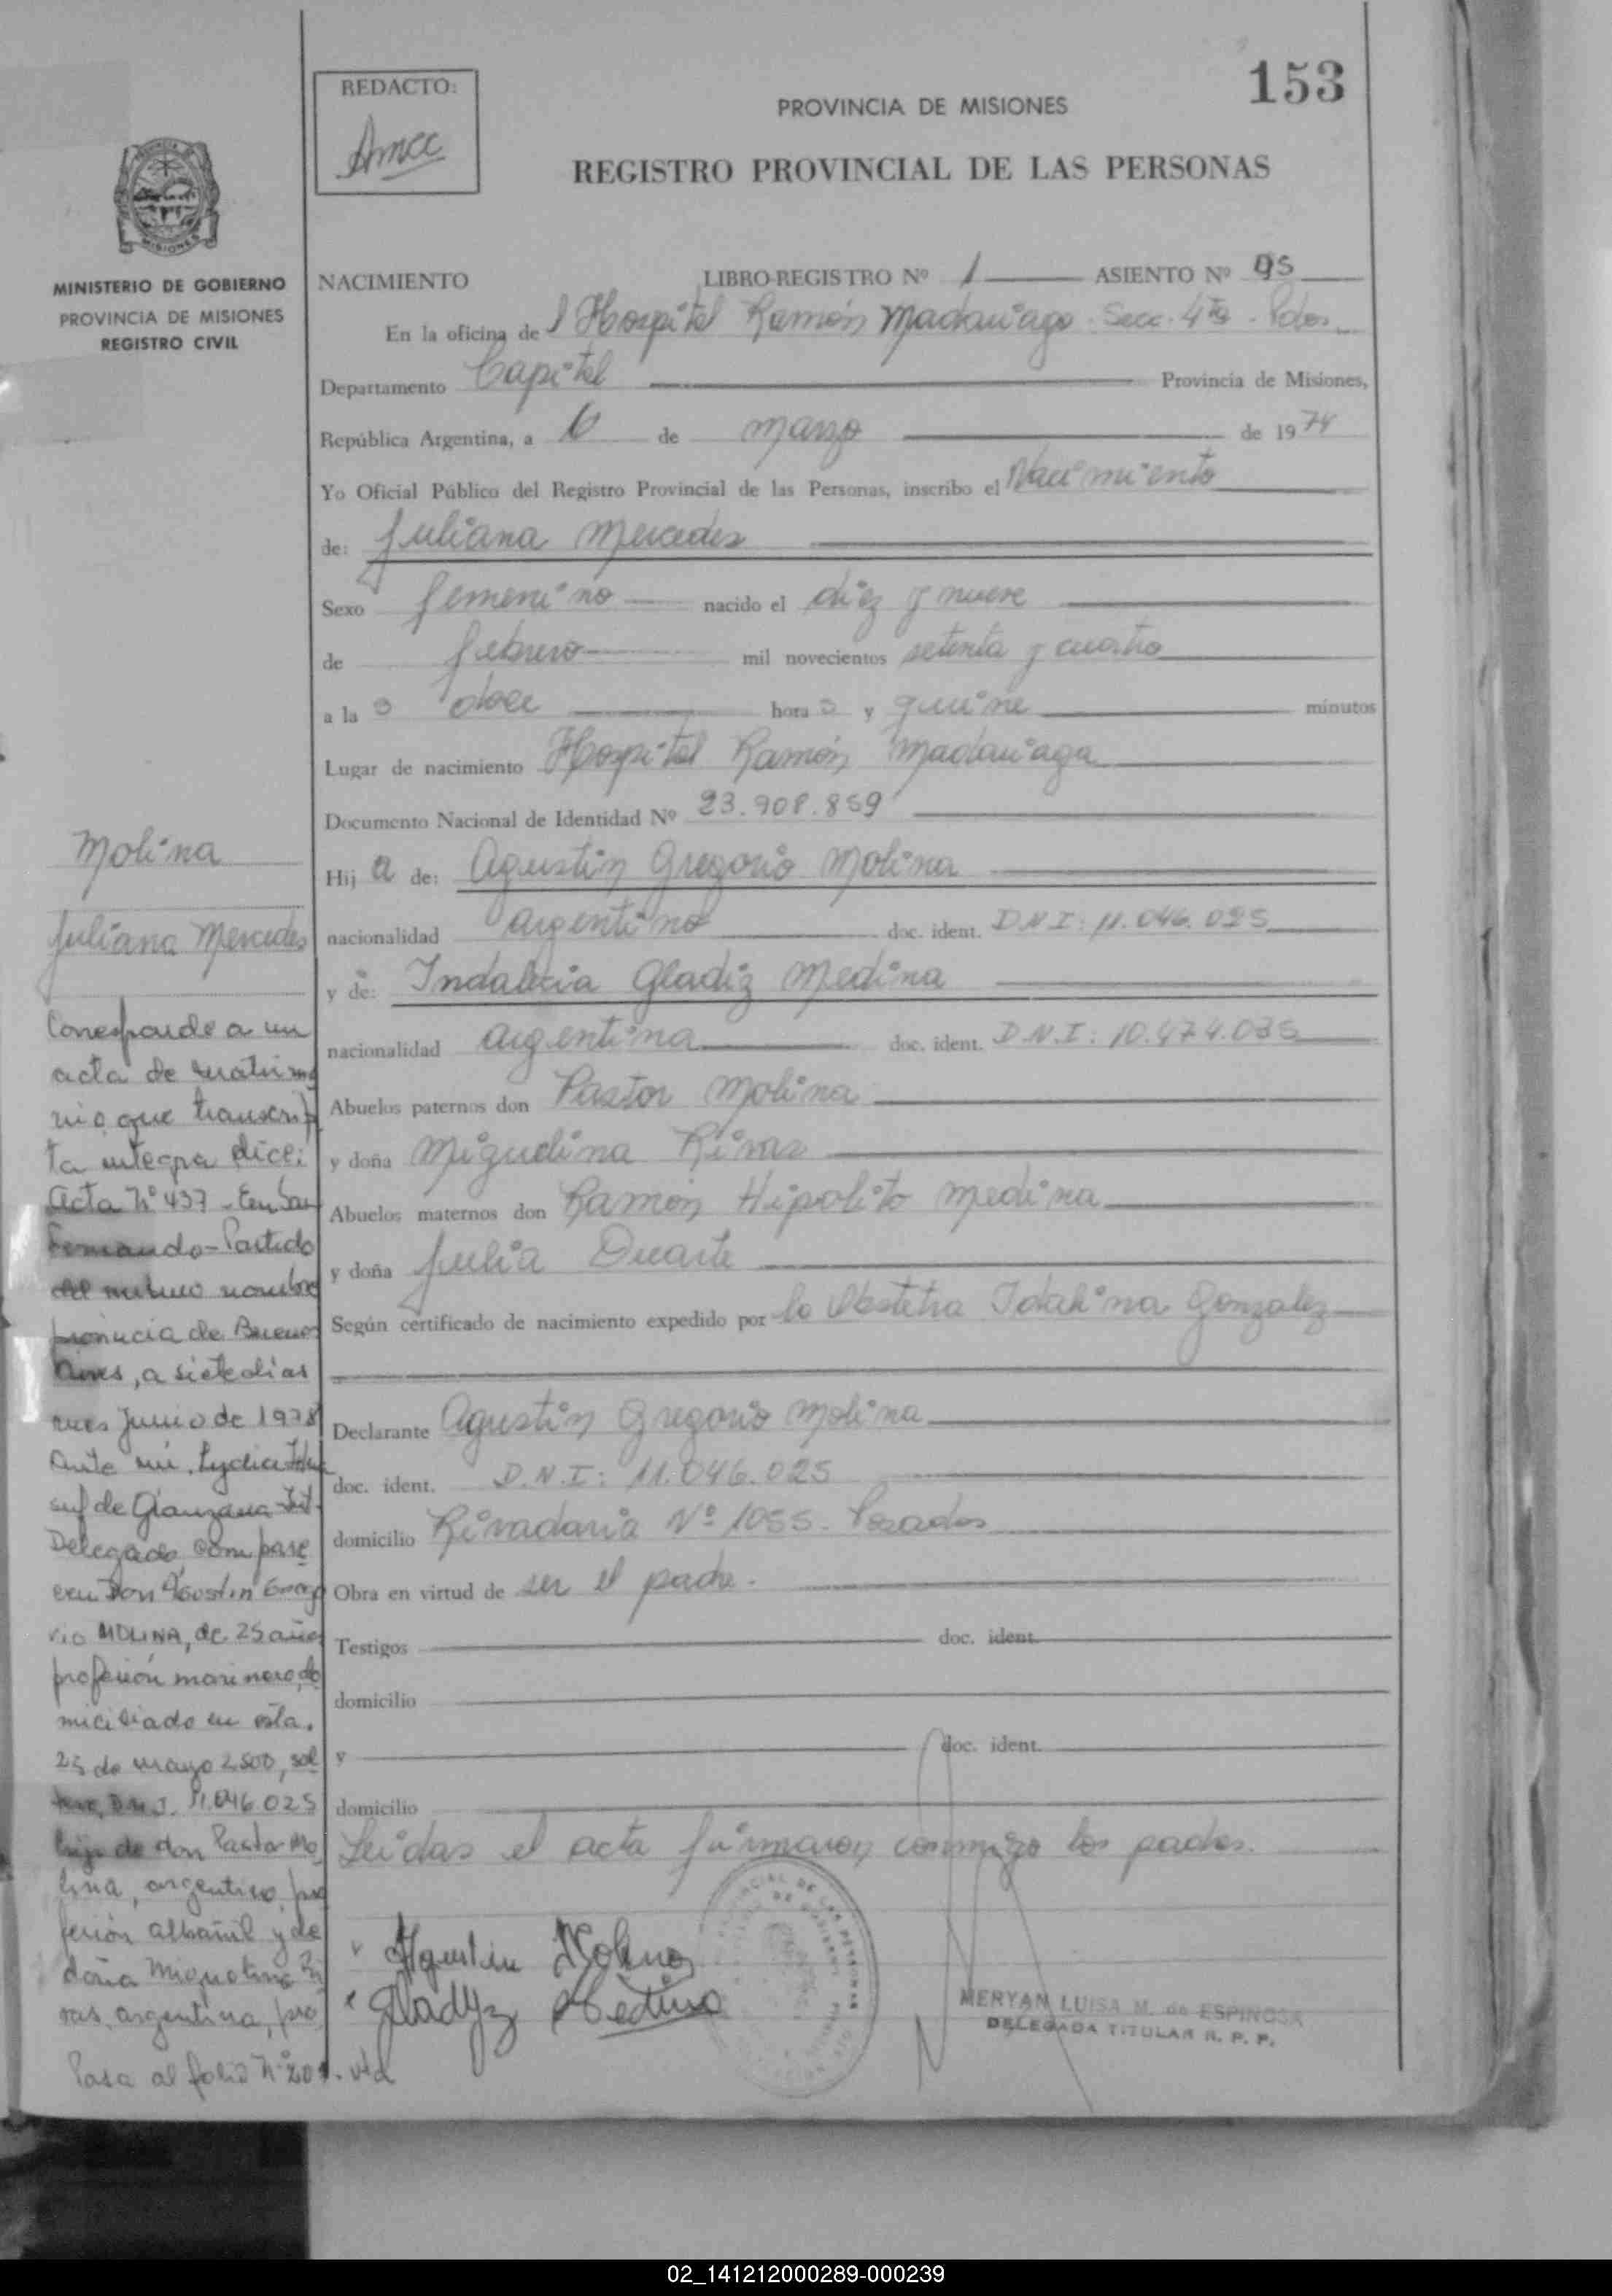 153
REDACTO:
PROVINCIA DE MISIONES
REGISTRO PROVINCIAL DE LAS PERSONAS
MINISTERIO DE GOBIERNO
PROVINCIA DE MISIONES
REGISTRO CIVIL
NACIMIENTO LIBRO-REGISTRO Nº 1 ASIENTO Nº 95
En la oficina del Hospital Ramón Madariaga. Secc. 4ta. Pdas.
Departamento Capital Provincia de Misiones,
República Argentina, a 6 de marzo de 1974
Yo Oficial Público del Registro Provincial de las Personas, inscribo el Nacimiento
de: Juliana Mercedes
Sexo femenino nacido el diez y nueve
de febrero mil novecientos setenta y cuatro
a las doce horas y quince minutos
Lugar de nacimiento Hospital Ramón Madariaga
Documento Nacional de Identidad Nº 23.908.859
Hija de: Agustín Gregorio Molina
nacionalidad argentino doc. ident. D.N.I: 11.046.025
y de: Indalecia Gladiz Medina
nacionalidad argentina doc. ident. D.N.I: 10.474.035
Abuelos paternos don Pastor Molina
y doña Miguelina Rivas
Abuelos maternos don Ramón Hipolito Medina
y doña Julia Duarte
Según certificado de nacimiento expedido por la Obstetra Idalina Gonzalez
Declarante Agustín Gregorio Molina
doc. ident. D.N.I: 11.046.025
domicilio Rivadavia Nº 1055. Posadas
Obra en virtud de ser el padre.
Testigos doc. ident.
domicilio
y doc. ident.
domicilio
Leidas el acta firmaron conmigo los padres.
Agustin Molina
Gladyz Medina
MERYAN LUISA M. de ESPINOSA
DELEGADA TITULAR R. P. P.
Molina
Juliana Mercedes
Corresponde a un
acta de matrimo
nio que transcrip
ta integra dice:
Acta Nº 437 - En San
Fernando - Partido
del mismo nombre
provincia de Buenos
Aires, a siete dias
mes Junio de 1978
Ante mi, Lydia
de Gianzana Tit.
Delegado, compare
cen Don Agustin Grego
rio MOLINA, de 25 años
profesión marinero, do
miciliado en ésta.
25 de mayo 2500, sol
tero, D.N.I. 11.046.025
hijo de don Pastor Mo
lina, argentino, pro
fesión albañil y de
doña Miguelina Ri
vas, argentina, pro
Pasa al folio Nº 201. vta
02_141212000289-000239